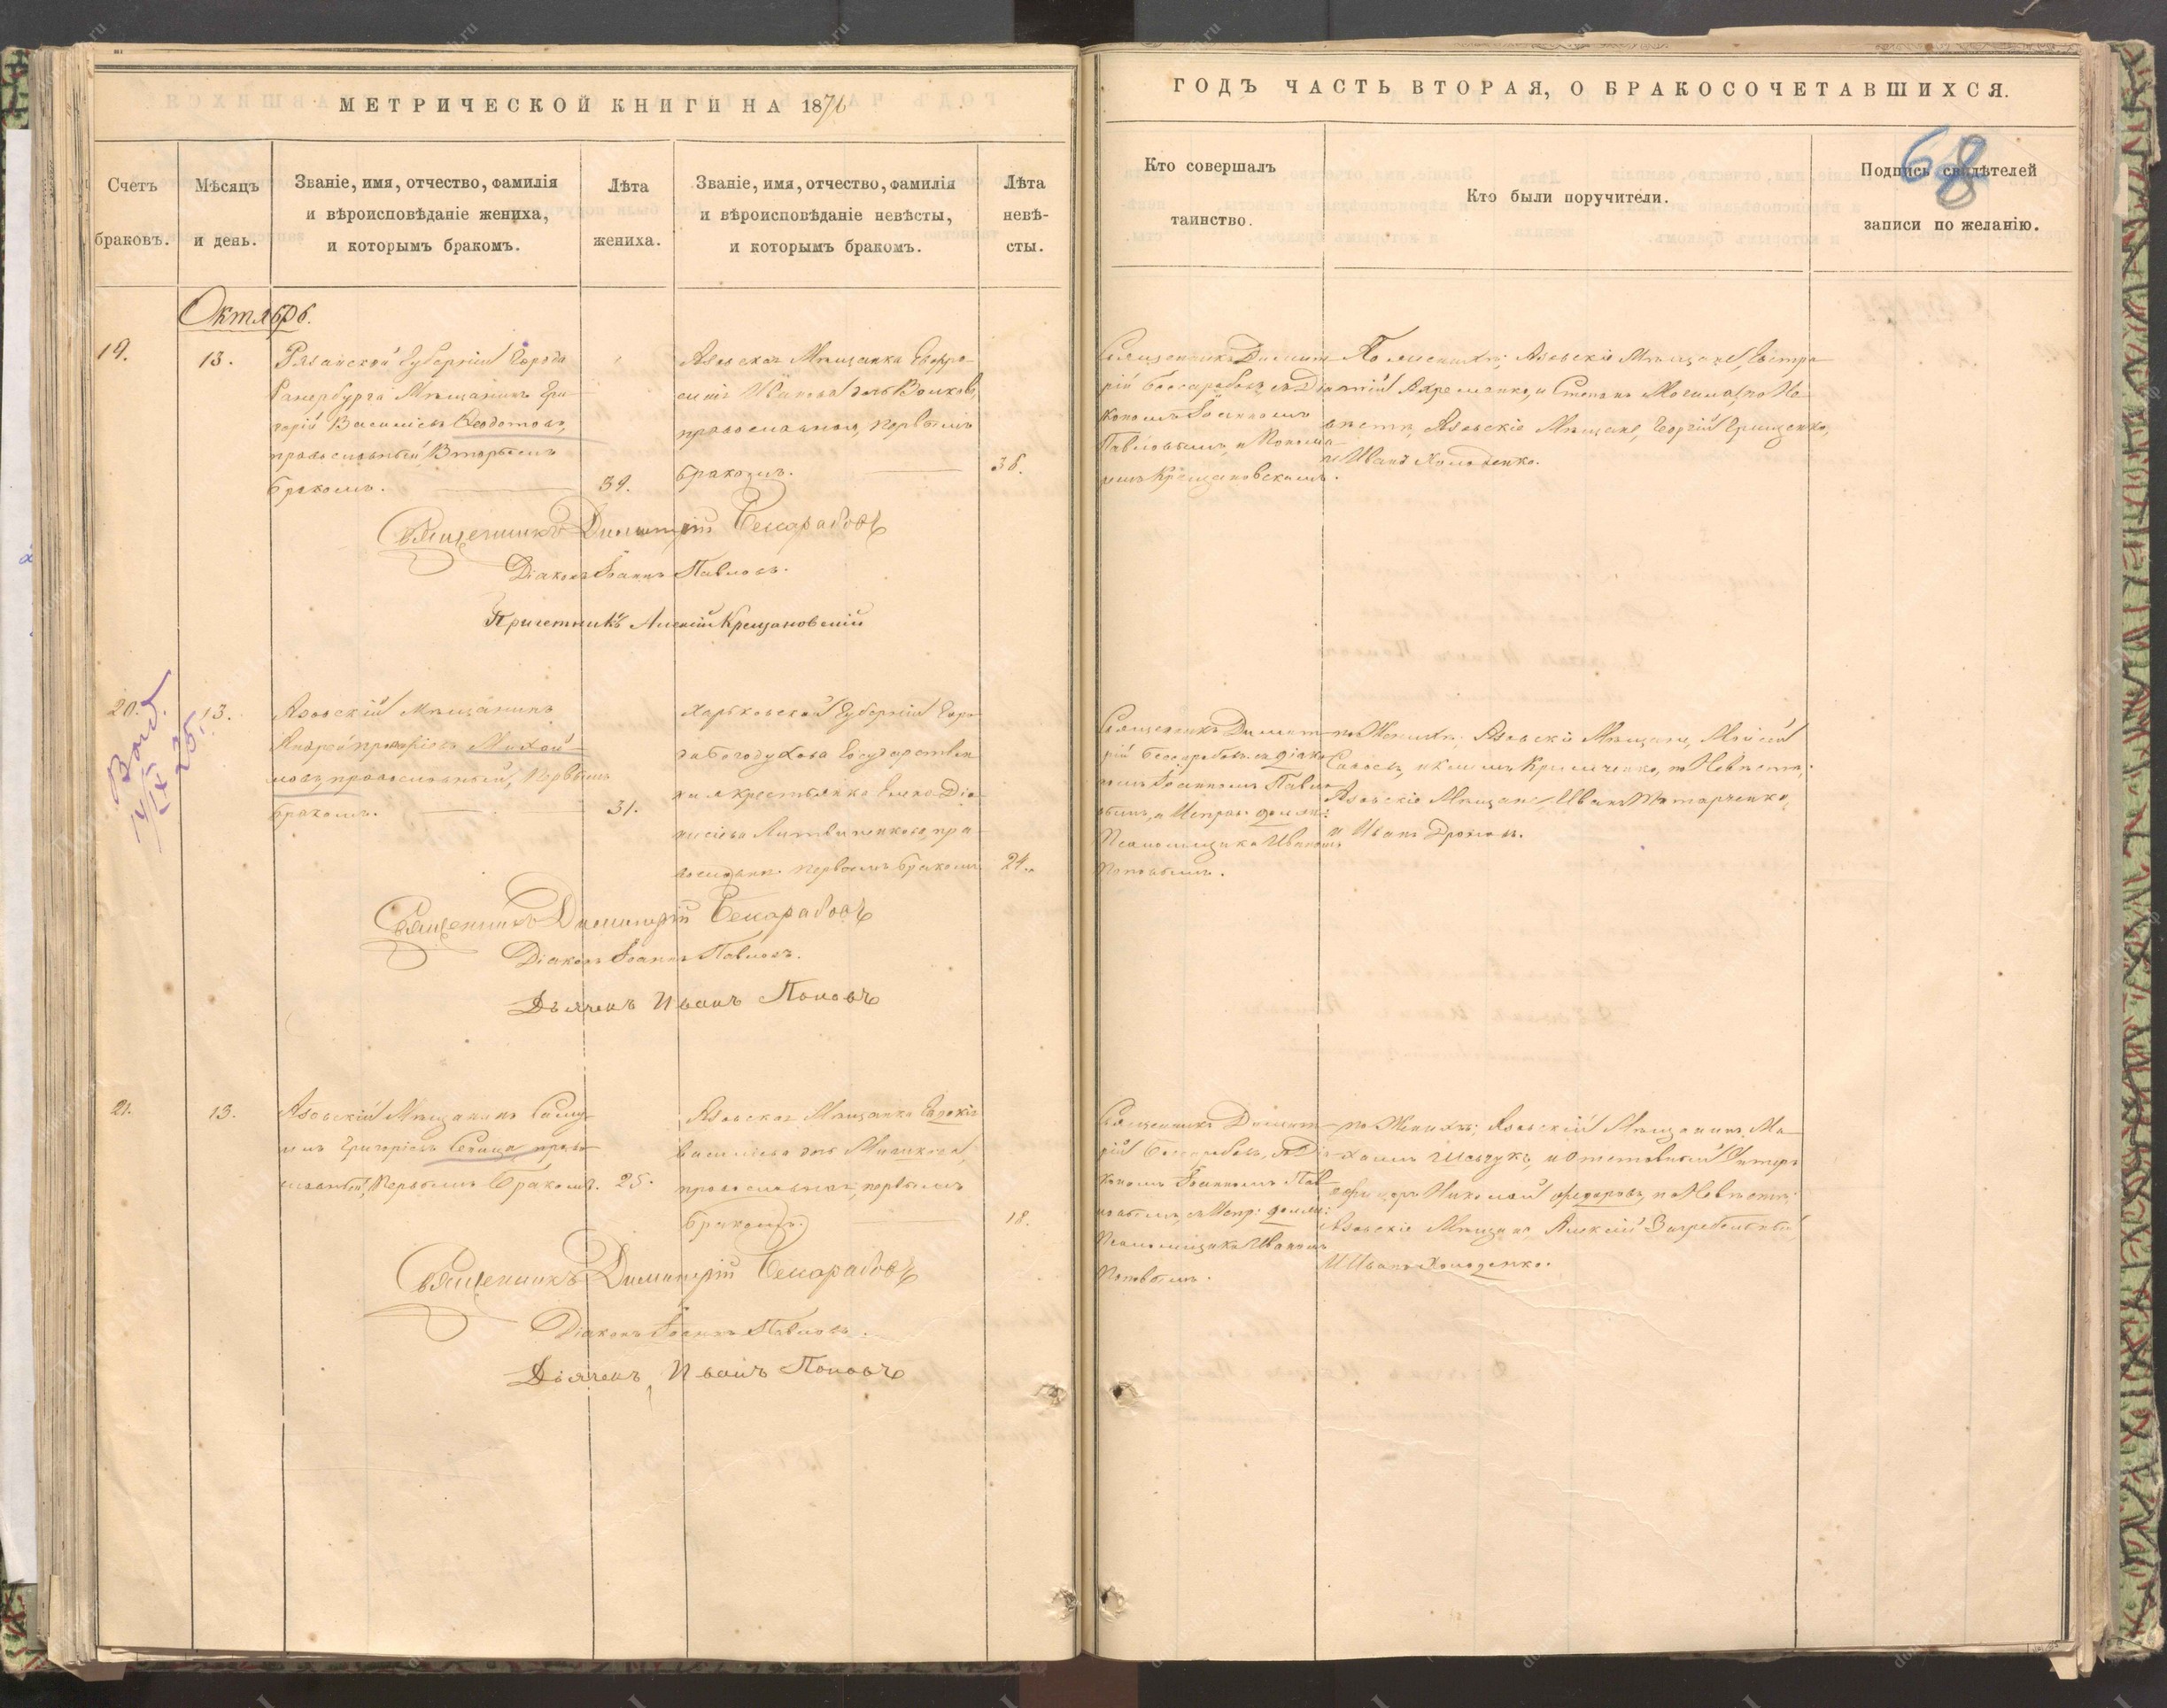 МЕТРИЧЕСКОЙ КНИГИ НА 1876
ГОДЪ ЧАСТЬ ВТОРАЯ, О БРАКОСОЧЕТАВШИХСЯ.
68
Счетъ
браковъ.
Мѣсяцъ
и день.
Званіе, имя, отчество, фамилія
и вѣроисповѣданіе жениха,
и которымъ бракомъ.
Лѣта
жениха.
Званіе, имя, отчество, фамилія
и вѣроисповѣданіе невѣсты,
и которымъ бракомъ.
Лѣта
невѣ-
сты.
Кто совершалъ
таинство.
Кто были поручители.
Подпись свидѣтелей
записи по желанію.
Октябрь.
19.
13.
Рязанской Губерніи Города
Ранербурга Мѣщанинъ Гри-
горій Василіевъ Ѳеодотовъ,
православный, Вторымъ
бракомъ.
39.
Азовская Мѣщанка Евфро-
синія Иванова дочь Волкова,
православная, первымъ
бракомъ.
36.
Священникъ Димит-
рій Бессарабовъ, съ Діа-
кономъ Іоанномъ
Павловымъ, и Понома-
ремъ Крещановскимъ.
По женихѣ; Азовскіе Мѣщане, Евстра-
тій Ахременко, и Степанъ Могила, по Не-
вѣстѣ, Азовскіе Мѣщане, Георгій Грищенко,
и Иванъ Холоденко.
Священникъ Димитрій Бессарабовъ
Діаконъ Іоаннъ Павловъ.
Причетникъ Алексій Крещановскій
20.
13.
Азовскій Мѣщанинъ
Андрей
православный, Первымъ
бракомъ.
31.
Харьковской Губерніи Горо-
да Богодухова Государствен-
ная крестьянка Елена Діо-
нисіева Литвиненкова, пра-
вославная первымъ бракомъ
24.
Священникъ Димит-
рій Бессарабовъ съ діако-
номъ Іоанномъ Павло-
вымъ, и Исправ: должн:
Псаломщика Иваномъ
Поповымъ.
по Женихѣ; Азовскіе Мѣщане, Моисей
и Климъ Кримченко, по Невѣстѣ;
Азовскіе Мѣщане, Иванъ
и Иванъ Дроновъ.
Священникъ Димитрій Бессарабовъ
Діаконъ Іоаннъ Павловъ.
Дьячекъ Иванъ Поповъ
21.
13.
Азовскій Мѣщанинъ Саму-
илъ Григоріевъ Сепица право-
славный, Первымъ Бракомъ.
25.
Азовская Мѣщанка Евдокія
Василіева дочь
православная, первымъ
бракомъ.
18.
Священникъ Димит-
рій Бессарабовъ, съ Діа-
кономъ Іоанномъ Пав-
ловымъ, съ Испр: должн:
Псаломщика Иваномъ
Поповымъ.
по Женихѣ; Азовскій Мѣщанинъ, Ми-
хаилъ Шевчукъ, и Отставной Унтеръ
офицеръ Николай Федоровъ, по Невѣстѣ;
Азовскіе Мѣщане Алексій Загребельный,
и Иванъ Холоденко.
Священникъ Димитрій Бессарабовъ
Діаконъ Іоаннъ Павловъ.
Дьячекъ, Иванъ Поповъ